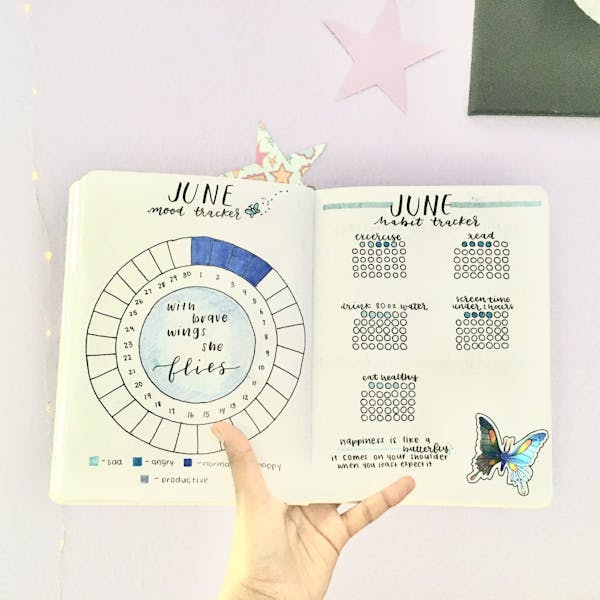 JUNE
mood tracker
1 2 3 4 5 6 7 8 9 10 11 12 13 14 15 16 17 18 19 20 21 22 23 24 25 26 27 28 29 30
with
brave
wings
she
flies
- sad - angry - norm ppy
- productive
JUNE
habit tracker
excercise read
drink 80 oz water
screen time
under 2 hours
eat healthy
happiness is like a
butterfly
it comes on your shoulder
when you least expect it